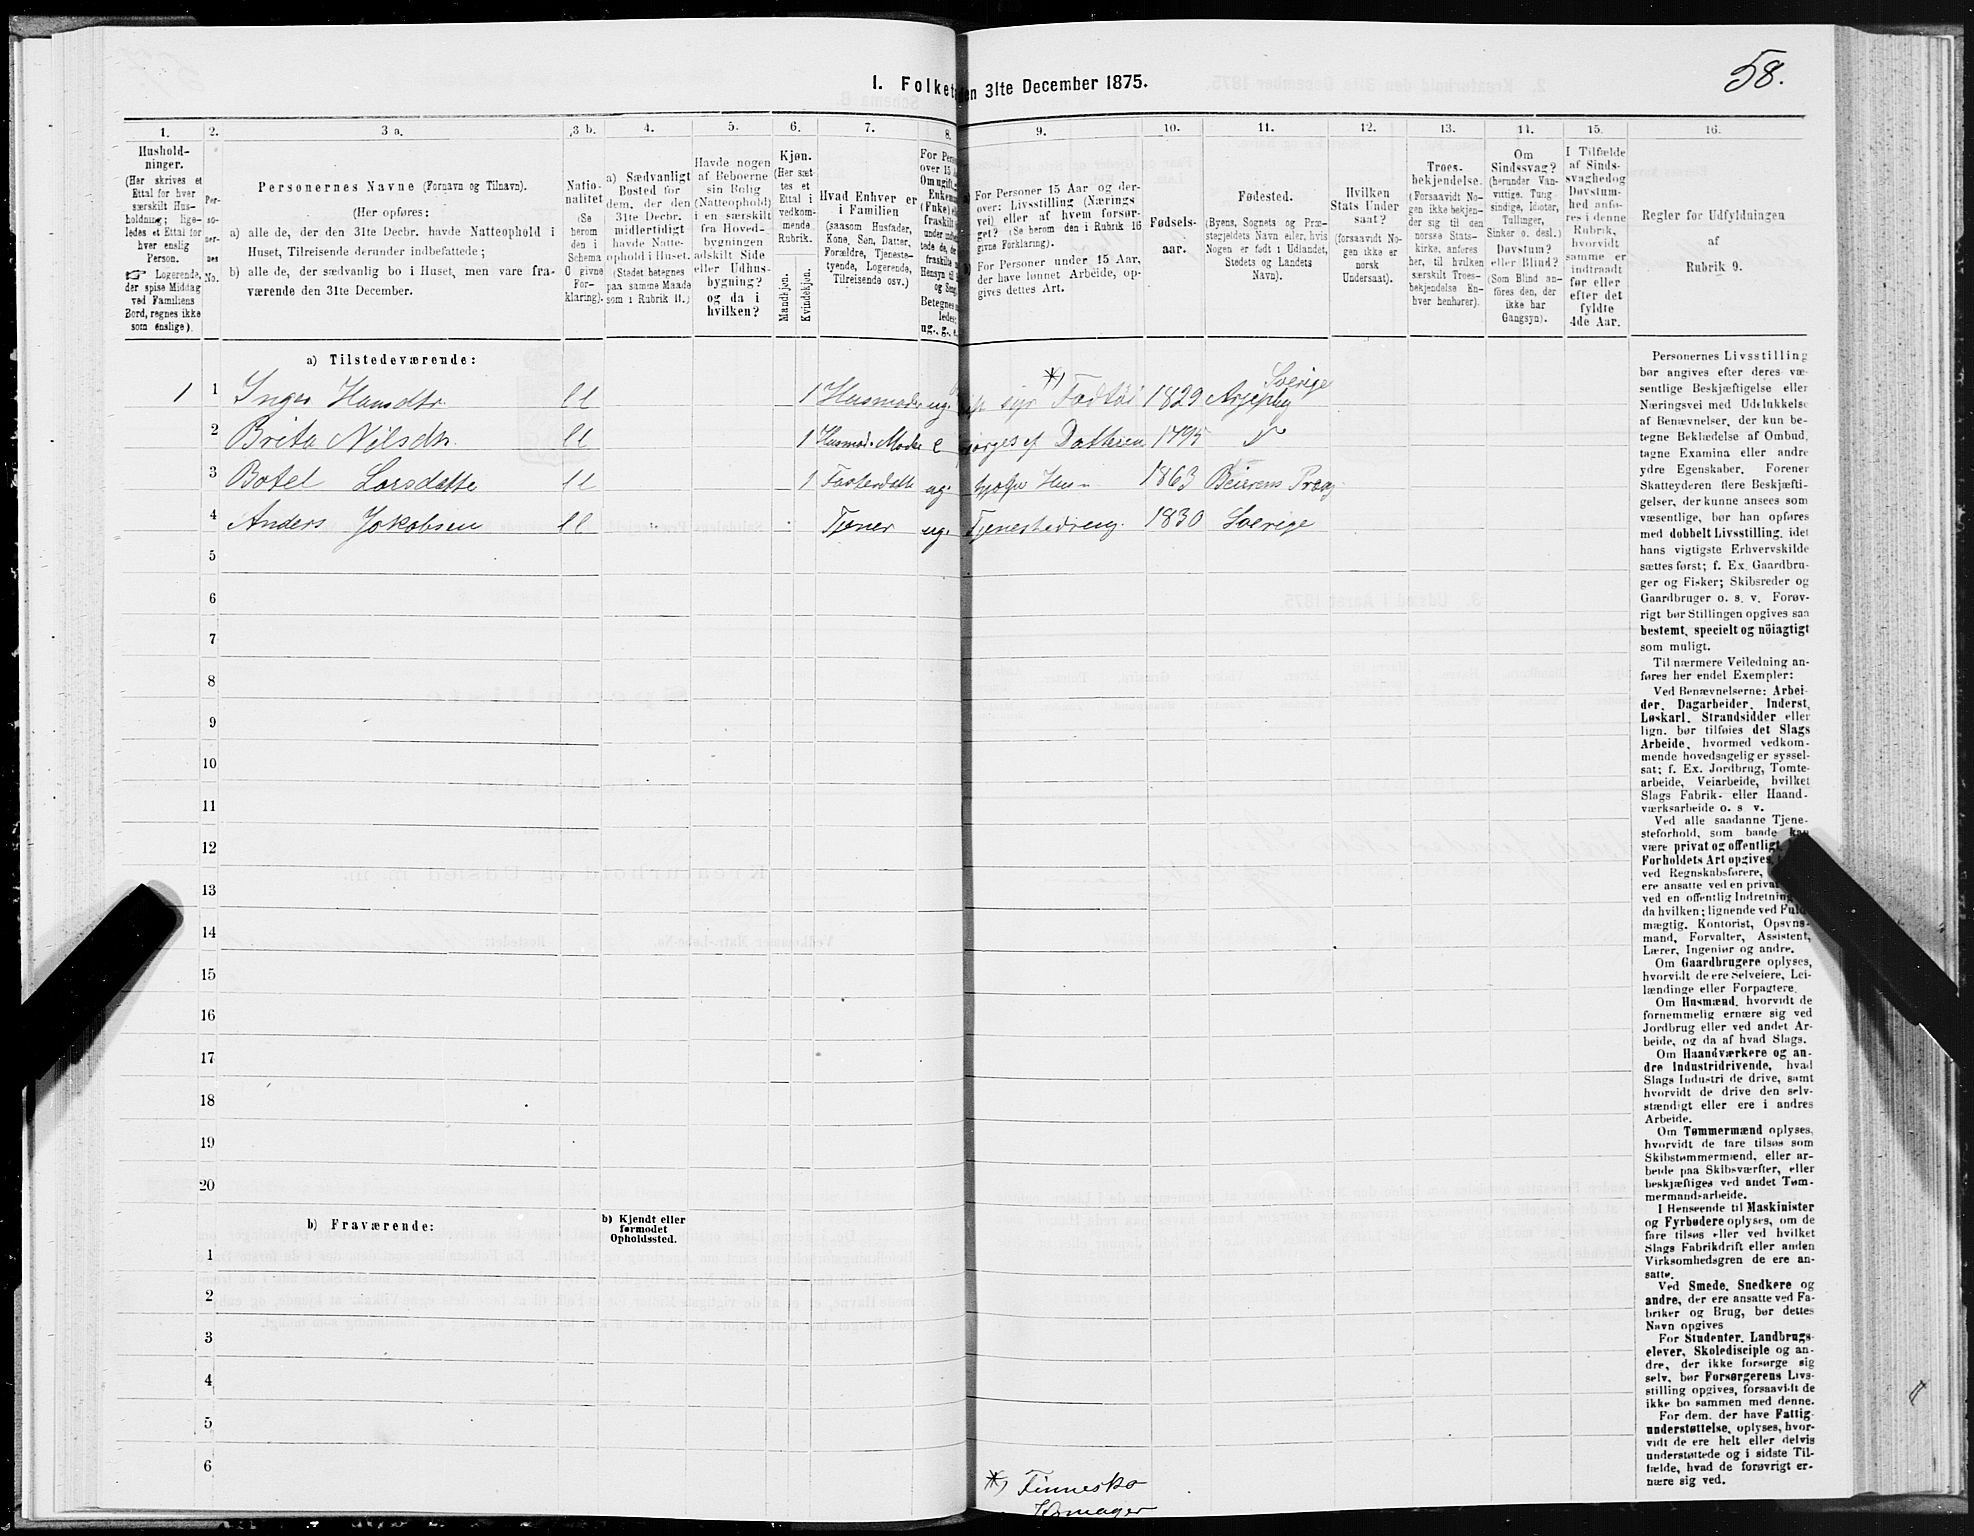 58.
I. Folket
den 31te December 1875.
1.
Hushold-
ninger.
(Her skrives et
Ettal for hver
særskilt Hus-
holdning; lige-
ledes et Ettal for
hver enslig
Person.
☞ Logerende,
der spise Middag
ved Familiens
Bord, regnes ikke
som enslige).
2.
Per-
so-
ner-
nes
No.
3 a.
Personernes Navne (Fornavn og Tilnavn).
(Her opføres:
a) alle de, der den 31te Decbr. havde Natteophold i
Huset, Tilreisende derunder indbefattede;
b) alle de, der sædvanlig bo i Huset, men vare fra-
værende den 31te December.
3 b.
Natio-
nalitet
(Se
herom
den i
Schema
O givne
For-
klaring).
4.
a) Sædvanligt
Bosted for
dem, der den
31te Decbr.
midlertidigt
havde Natte-
ophold i Huset.
(Stedet betegnes
paa samme Maade
som i Rubrik 11.)
5.
Havde nogen
af Beboerne
sin Bolig
(Natteophold)
i en særskilt
fra Hoved-
bygningen
adskilt Side
eller Udhus-
bygning?
og da i
hvilken?
6.
Kjøn.
(Her sæt
tes et
Ettal i
vedkom-
mende
Rubrik.
Mandkjøn.
Kvindekjøn.
7.
Hvad Enhver er
i Familien
(saasom Husfader,
Kone, Søn, Datter,
Forældre, Tjeneste-
tyende, Logerende,
Tilreisende osv.)
8.
For Pers
over 15 A
Om ugift, g
Enkema
(Enke) e
fraskilt
under
tede de, d
fraskilte
Hensyn til
og Seng.
Betegnes
ledes:
ug., g., e.
9.
a) For Personer 15 Aar og der-
over: Livsstilling (Nærings
vei) eller af hvem forsør-
get? (Se herom den i Rubrik 16
givne Forklaring).
b) For Personer under 15 Aar,
der have lønnet Arbeide, op-
gives dettes Art.
10.
Fødsels-
aar.
11.
Fødested.
(Byens, Sognets og Præ-
stegjeldets Navn eller, hvis
Nogen er født i Udlandet,
Stedets og Landets
Navn).
12.
Hvilken
Stats Under
saat?
(forsaavidt No-
gen ikke er
norsk
Undersaat).
13.
Troes-
bekjendelse.
(Forsaavidt No-
gen ikke bekjen-
der sig til den
norske Stats-
kirke, anføres
her, til hvilken
særskilt Troes-
bekjendelse En-
hver henhører).
14.
Om
Sindssvag?
(herunder Van-
vittige, Tung
sindige, Idioter,
Tullinger,
Sinker o. desl.)
Døvstum?
eller Blind?
(Som Blind an-
føres den, der
ikke har
Gangsyn).
15.
I Tilfælde
af Sinds-
svaghed og
Døvstum-
hed anfø-
res i denne
Rubrik,
hvorvidt
samme er
indtraadt
før eller
efter det
fyldte
4de Aar.
16.
Regler for Udfyldningen
af
Rubrik 9.
a) Tilstedeværende:
Sverige
1 1 Inger Hansdtr. 1 Husmoder ug. syr *) Fodtøi 1829 Arjeplog
2 Brita Nilsdtr. 1 Husmod. Moder e forsørges af Datteren 1795
3 Botel Larsdatte 1 Fosterdatte ug. 1863 Beierens Præg
4 Anders Jokobsen Tjener ug. Tjenestedreng. 1830 Sverige
5
6
7
8
9
10
11
12
13
14
15
16
17
18
19
20
b) Fraværende:
b) Kjendt eller
formodet
Opholdssted.
1
2
3
4
5
6
*) Finnesko
Komager
Personernes Livsstilling
bør angives efter deres væ-
sentlige Beskjæftigelse eller
Næringsvei med Udelukkelse
af Benævnelser, der kun be-
tegne Beklædelse af Ombud,
tagne Examina eller andre
ydre Egenskaber. Forener
Skatteyderen flere Beskjæfti-
gelser, der kunne ansees som
væsentlige, bør han opføres
med dobbelt Livsstilling, idet
hans vigtigste Erhvervskilde
sættes først; f. Ex. Gaardbru-
ger og Fisker; Skibsreder og
Gaardbruger o. s. v. Forøv-
rigt bør Stillingen opgives saa
bestemt, specielt og nöiagtigt
som muligt.
Til nærmere Veiledning an-
føres her endel Exempler:
Ved Benævnelserne: Arbei-
der, Dagarbeider, Inderst,
Løskarl, Strandsidder eller
lign. bør tilføies det Slags
Arbeide, hvormed vedkom-
mende hovedsagelig er syssel-
sat; f. Ex. Jordbrug, Tomte-
arbeide, Veiarbeide, hvilket
Slags Fabrik- eller Haand-
værksarbeide o. s. v.
Ved alle saadanne Tjene-
steforhold, som baade kan
være privat og offentligt,
Forholdets Art opgives,
ved Regnskabsførere,
ere ansatte ved en privat
ved en offentlig Indretning
da hvilken; lignende ved Fuld
mægtig, Kontorist, Opsyns-
mand, Forvalter, Assistent,
Lærer, Ingeniør og andre.
Om Gaardbrugere oplyses,
hvorvidt de ere Selveiere, Lei-
lændinge eller Forpagtere.
Om Husmænd, hvorvidt de
fornemmelig ernære sig ved
Jordbrug eller ved andet Ar-
beide, og da af hvad Slags.
Om Haandværkere og an-
dre Industridrivende, hvad
Slags Industri de drive, samt
hvorvidt de drive den selv-
stændigt eller ere i andres
Arbeide.
Om Tømmermænd oplyses,
hvorvidt de fare tilsøs som
Skibstømmermænd, eller ar-
beide paa Skibsværfter, eller
beskjæftiges ved andet Tøm-
mermandsarbeide.
I Henseende til Maskinister
og Fyrbødere oplyses, om de
fare tilsøs eller ved hvilket
Slags Fabrikdrift eller anden
Virksomhedsgren de ere an-
satte.
Ved Smede, Snedkere og
andre, der ere ansatte ved Fa-
briker og Brug, bør dettes
Navn opgives
For Studenter, Landbrugs-
elever, Skoledisciple og an-
dre, der ikke forsørge sig
selv, bør Forsørgerens Livs-
stilling opgives, forsaavidt de
ikke bo sammen med denne.
For dem, der have Fattig-
understøttelse, oplyses, hvor-
vidt de ere helt eller delvis
understøttede og i sidste Til-
fælde, hvad de forøvrigt er-
nære sig ved.